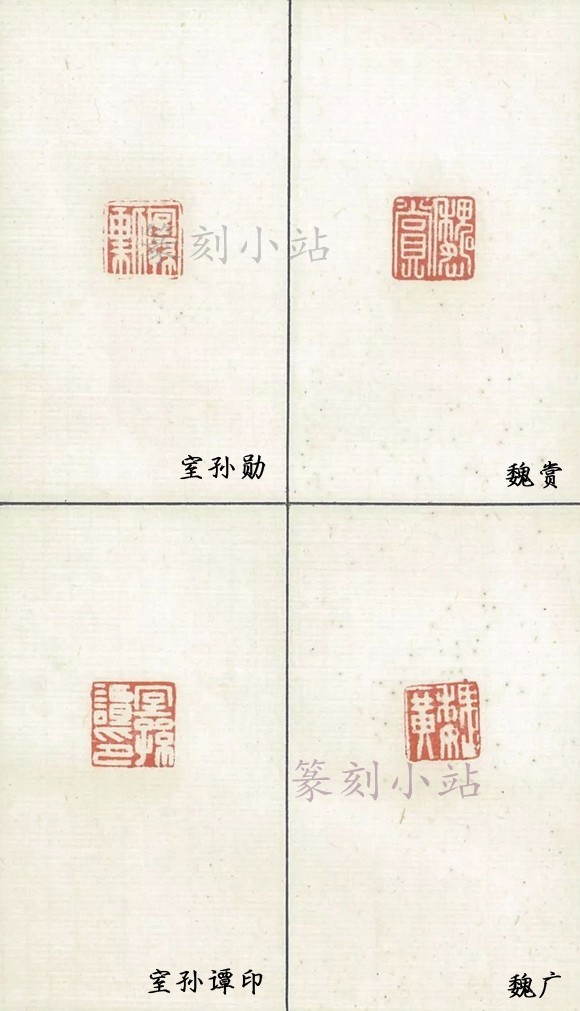 篆刻小站
室孙勋
魏赏
篆刻小站
室孙谭印
魏广